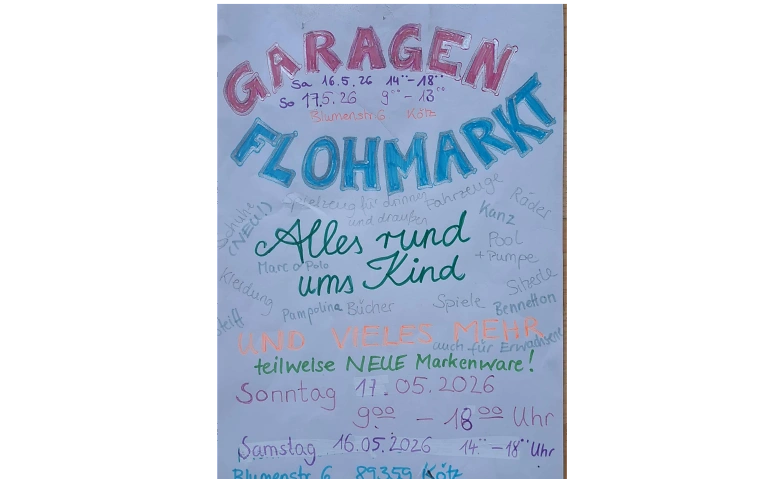 GARAGEN
Sa 16.5.26 14°°-18°°
So 17.5.26 9°°-13°°
Blumenstr. 6 Kötz
FLOHMARKT
Schuhe (NEU!)
Spielzeug für drinnen und draußen
Fahrzeuge
Räder
Kanz
Alles rund
ums Kind
Pool + Pumpe
Marco Polo
Kleidung
Steiff
Pampolina
Bücher
Spiele
Bennetton
UND VIELES MEHR
auch für Erwachsene
teilweise NEUE Markenware!
Sonntag 17.05.2026
9°° - 18°° Uhr
Samstag 16.05.2026 14°° - 18°° Uhr
Blumenstr. 6 89359 Kötz